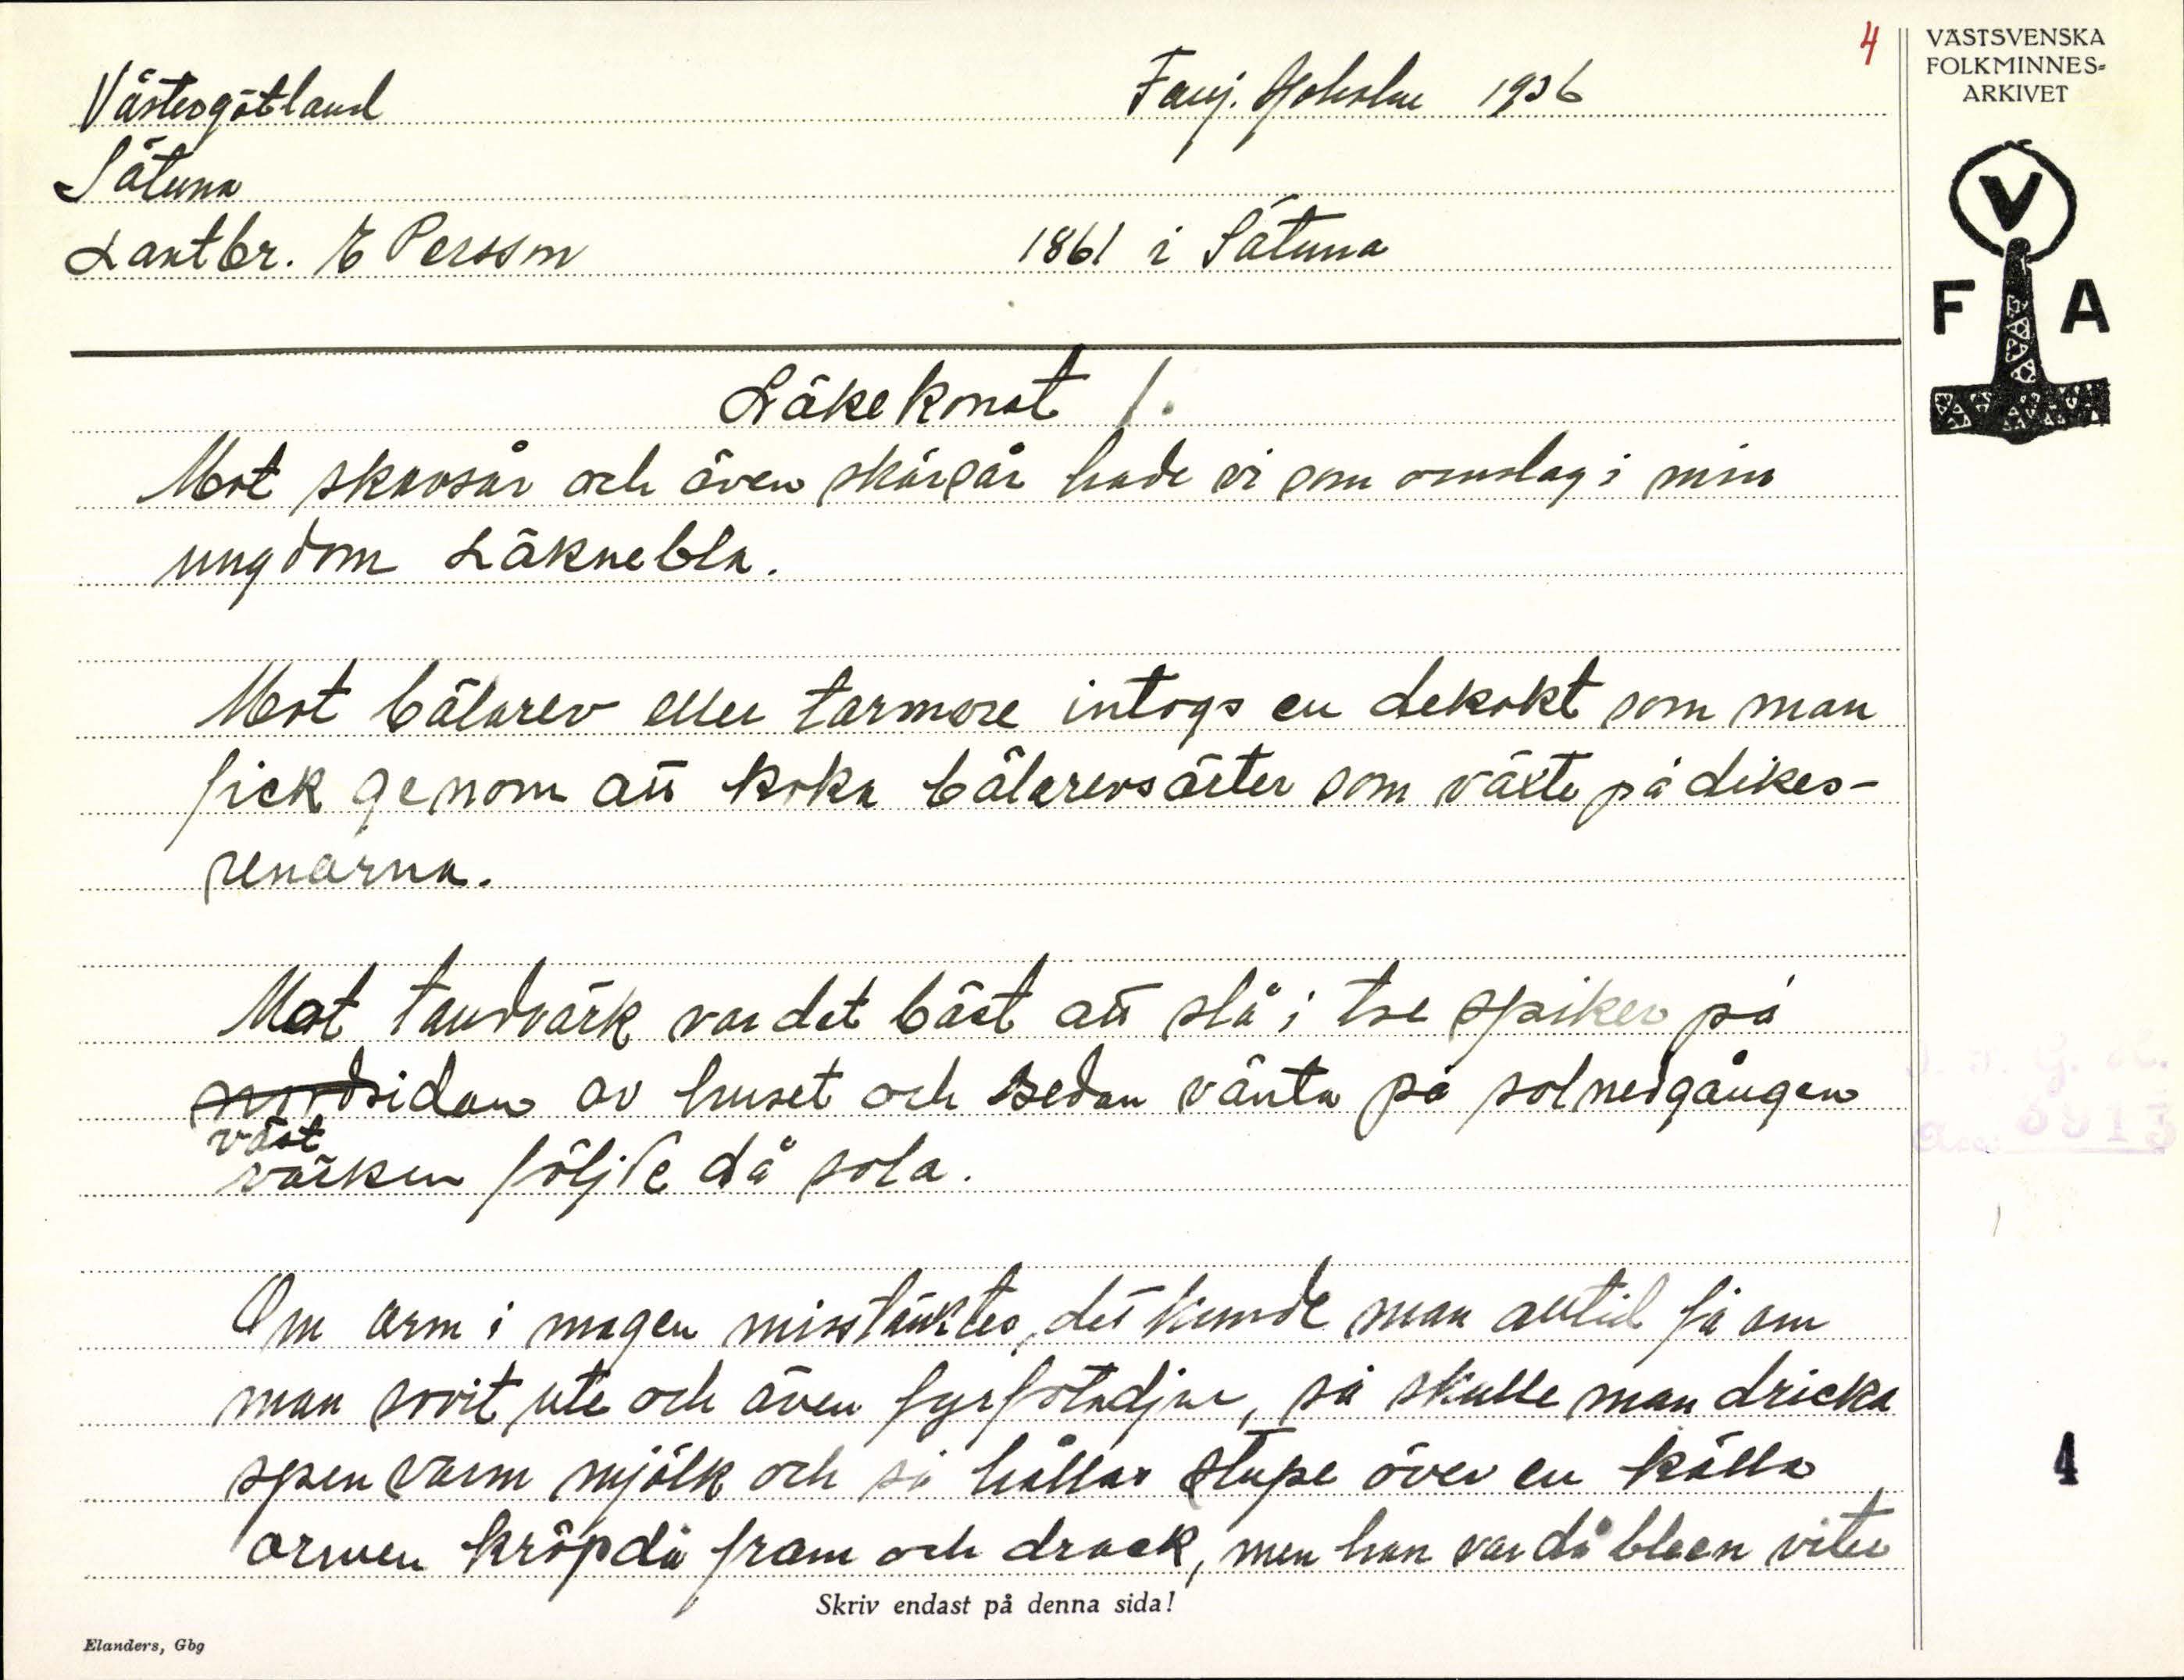 4
VÄSTSVENSKA
FOLKMINNES=
ARKIVET
V
F A
Västergötland
Fanj. 1936
Såtuna
Lantbr. E Persson 1861 i Såtuna
Läkekonst 1.
Mot skavsår och även skärsår hade vi som omslag i min
ungdom Läknebla.
Mot bälarev eller tarmore intogs en dekokt som man
fick genom att koka bälarevsärter som växte på dikes-
renarna.
Mot tandvärk var det bäst att slå i tre spiker på
nordsidan av huset och sedan vänta på solnedgången
väst
värken följde då sola.
Om orm i magen misstänktes, det kunde man alltid få om
man sovit ute och även fyrfotadjur, så skulle man dricka
spen varm mjölk och så hållas stupe över en källa
ormen kröp då fram och drack, men han var då bleen viter
4
Skriv endast på denna sida!
Elanders, Gbg